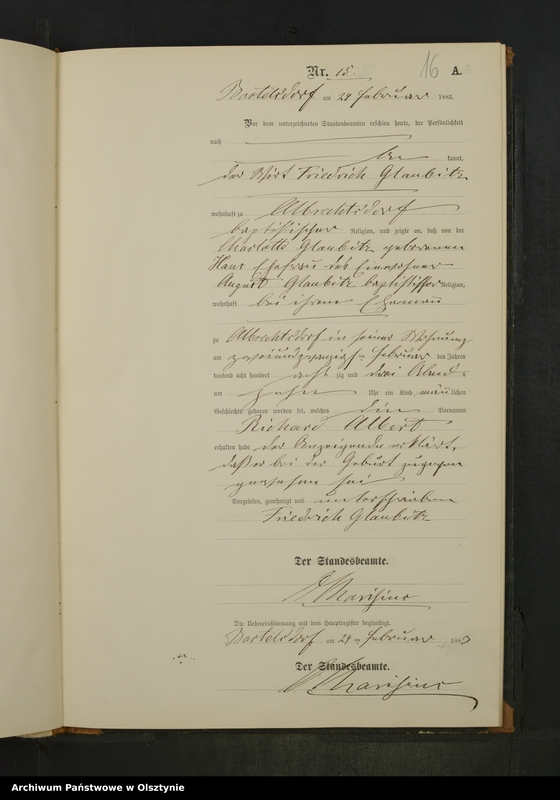 Nr. 15
16 A.
Bartelsdorf am 24 Februar 1883.
Vor dem unterzeichneten Standesbeamten erschien heute, der Persönlichkeit
nach
kannt,
der Wirt Friedrich Glaubitz
wohnhaft zu Albrechtsdorf
baptistischer Religion, und zeigte an, daß von der
Charlotte Glaubitz geborenen
Ehefrau des Einwohner
August Glaubitz baptistischer Religion,
wohnhaft bei ihrem Ehemann
zu Albrechtsdorf in seiner Wohnung
am zweiundzwanzigsten Februar des Jahres
tausend acht hundert acht zig und drei Abends
um zehn Uhr ein Kind männlichen
Geschlechts geboren worden sei, welches die Vornamen
Richard Albert
erhalten habe der Anzeigende erklärt,
daß er bei der Geburt zugegen
gewesen sei
Vorgelesen, genehmigt und unterschrieben
Friedrich Glaubitz
Der Standesbeamte.
Die Uebereinstimmung mit dem Hauptregister beglaubigt.
Bartelsdorf am 24 ten Februar 1883
Der Standesbeamte.
Archiwum Państwowe w Olsztynie